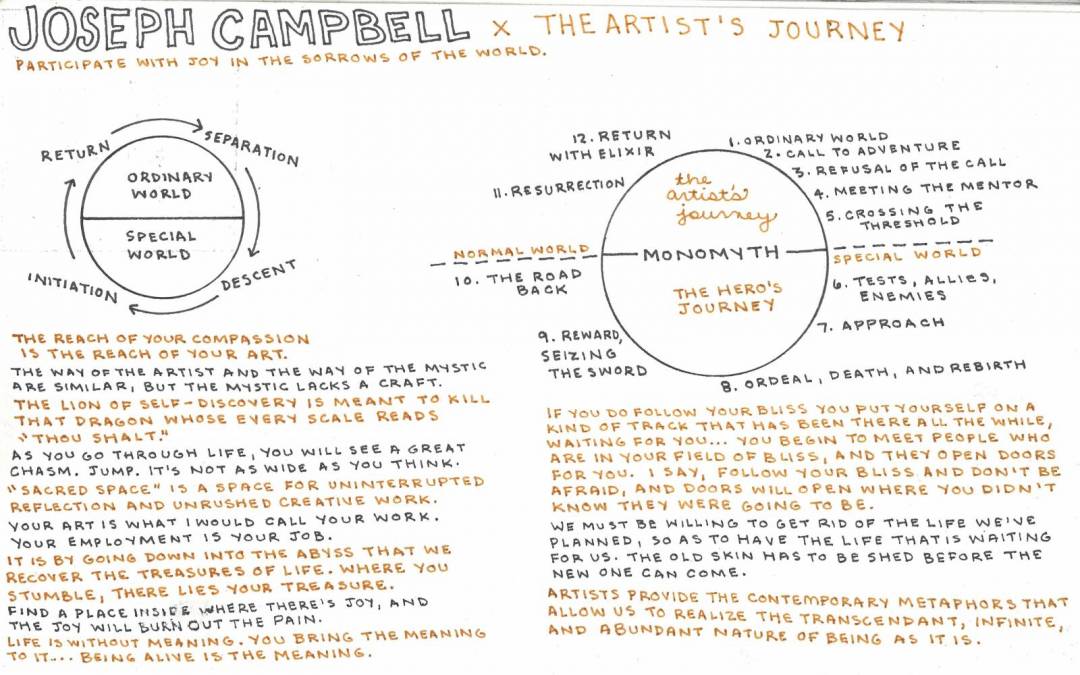 JOSEPH CAMPBELL x THE ARTIST'S JOURNEY
PARTICIPATE WITH JOY IN THE SORROWS OF THE WORLD.
RETURN
SEPARATION
ORDINARY
WORLD
SPECIAL
WORLD
INITIATION
DESCENT
12. RETURN
WITH ELIXIR
1. ORDINARY WORLD
2. CALL TO ADVENTURE
3. REFUSAL OF THE CALL
4. MEETING THE MENTOR
5. CROSSING THE
THRESHOLD
11. RESURRECTION
the
artist's
journey
NORMAL WORLD
MONOMYTH
SPECIAL WORLD
10. THE ROAD
BACK
THE HERO'S
JOURNEY
6. TESTS, ALLIES,
ENEMIES
7. APPROACH
9. REWARD,
SEIZING
THE SWORD
8. ORDEAL, DEATH, AND REBIRTH
THE REACH OF YOUR COMPASSION
IS THE REACH OF YOUR ART.
THE WAY OF THE ARTIST AND THE WAY OF THE MYSTIC
ARE SIMILAR, BUT THE MYSTIC LACKS A CRAFT.
THE LION OF SELF-DISCOVERY IS MEANT TO KILL
THAT DRAGON WHOSE EVERY SCALE READS
"THOU SHALT."
AS YOU GO THROUGH LIFE, YOU WILL SEE A GREAT
CHASM. JUMP. IT'S NOT AS WIDE AS YOU THINK.
"SACRED SPACE" IS A SPACE FOR UNINTERRUPTED
REFLECTION AND UNRUSHED CREATIVE WORK.
YOUR ART IS WHAT I WOULD CALL YOUR WORK.
YOUR EMPLOYMENT IS YOUR JOB.
IT IS BY GOING DOWN INTO THE ABYSS THAT WE
RECOVER THE TREASURES OF LIFE. WHERE YOU
STUMBLE, THERE LIES YOUR TREASURE.
FIND A PLACE INSIDE WHERE THERE'S JOY, AND
THE JOY WILL BURN OUT THE PAIN.
LIFE IS WITHOUT MEANING. YOU BRING THE MEANING
TO IT.... BEING ALIVE IS THE MEANING.
IF YOU DO FOLLOW YOUR BLISS YOU PUT YOURSELF ON A
KIND OF TRACK THAT HAS BEEN THERE ALL THE WHILE,
WAITING FOR YOU... YOU BEGIN TO MEET PEOPLE WHO
ARE IN YOUR FIELD OF BLISS, AND THEY OPEN DOORS
FOR YOU. I SAY, FOLLOW YOUR BLISS AND DON'T BE
AFRAID, AND DOORS WILL OPEN WHERE YOU DIDN'T
KNOW THEY WERE GOING TO BE.
WE MUST BE WILLING TO GET RID OF THE LIFE WE'VE
PLANNED, SO AS TO HAVE THE LIFE THAT IS WAITING
FOR US. THE OLD SKIN HAS TO BE SHED BEFORE THE
NEW ONE CAN COME.
ARTISTS PROVIDE THE CONTEMPORARY METAPHORS THAT
ALLOW US TO REALIZE THE TRANSCENDANT, INFINITE,
AND ABUNDANT NATURE OF BEING AS IT IS.